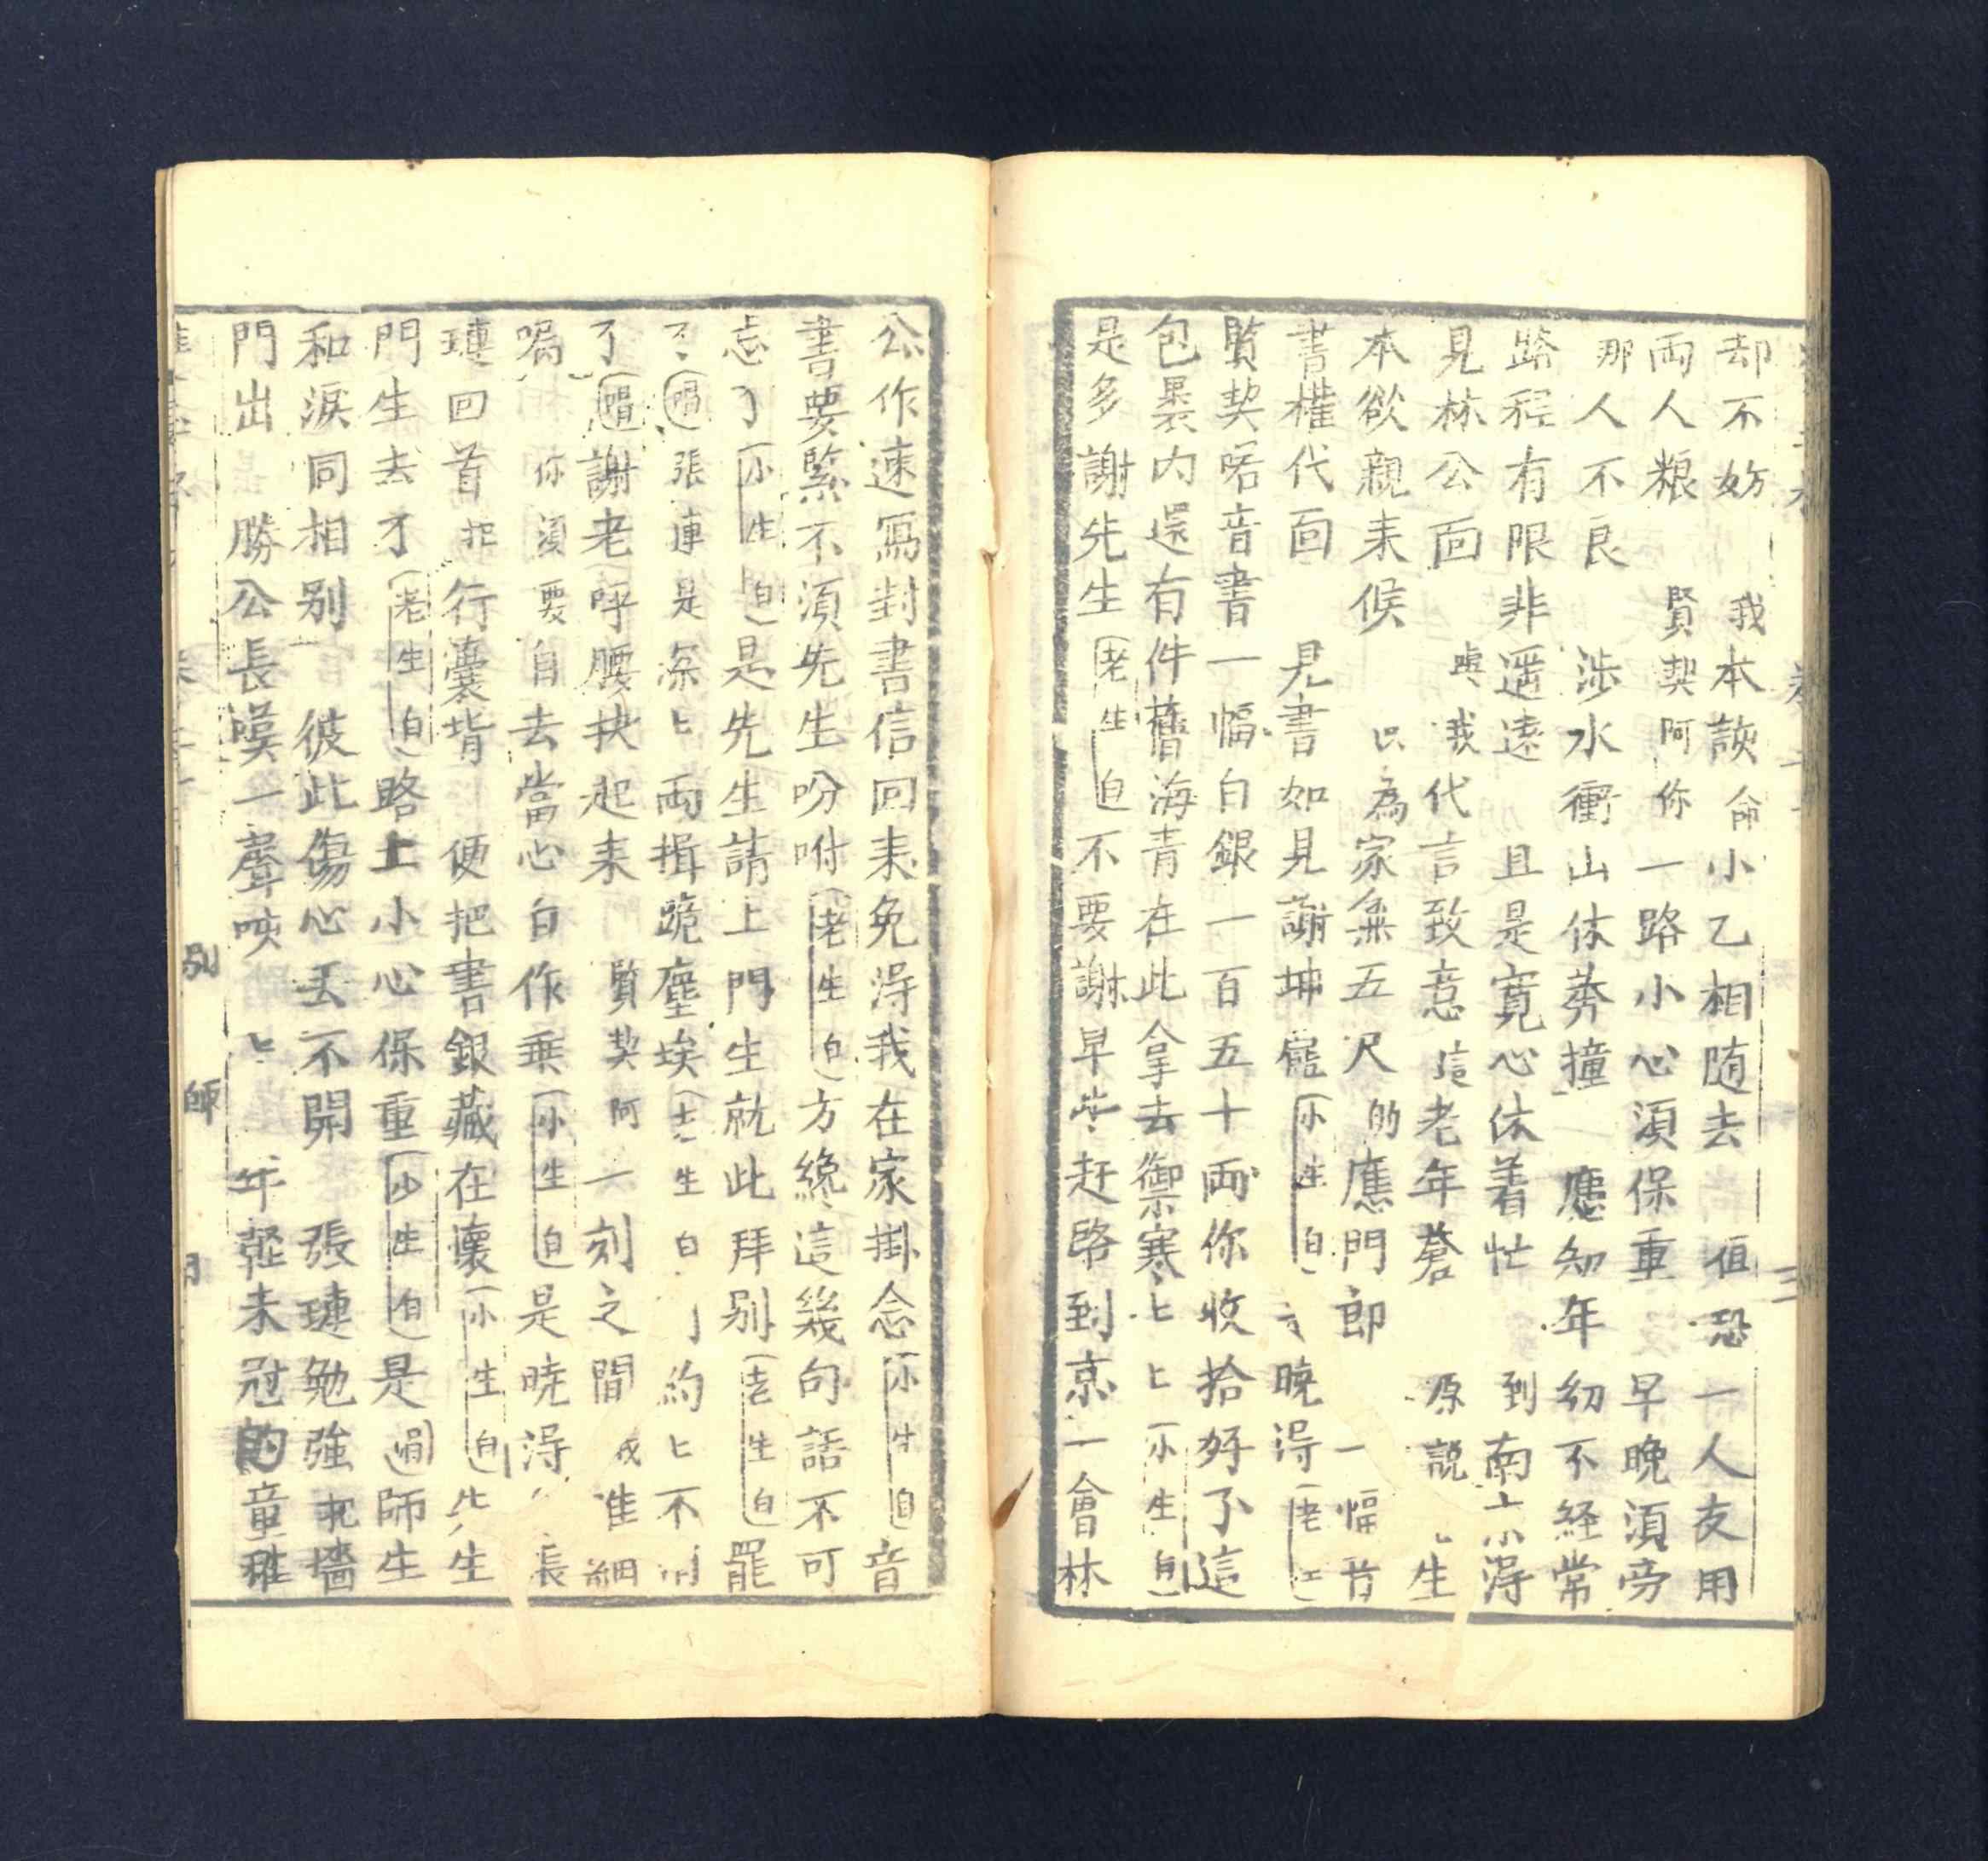 却不妨 我本該命小乙相随去 但恐一人友用
両人粮 賢契阿你一路小心須保重 早晚須旁
那人不良 涉水衝山休莽撞 應知年纫不経常
路程有限非遥遠 且是寛心休着忙 到南京淂
見林公面 與我代言致意這老年蒼 原説 生
本欲親来候 只為家無五尺的應門郎 一幅音
書權代面 見書如見謝坤 曉淂(老
賢契喏音書一幅白銀一百五十両你收拾好了這
包褁内還有件舊海青在此拿去禦寒匕匕(小生白)
是多謝先生(老生白)不要謝早些赶路到京一會林
公作速冩封書信回来免淂我在家掛念(小生白)音
書要緊不須先生吩咐(老生白)方纔這幾句話不可
忘了(小生白)是先生請上門生就此拜别(老生白)罷
了(唱)張連是深匕両揖跪塵埃(老生白) 約匕不
了(唱)謝老呼腰扶起来 賢契阿一刻之間我准細
嘱 你須要自去當心自作乗(小生白)是曉淂 張
璉回首把行囊背 便把書銀藏在懷(小生白)先生
門生去了(老生白)路上小心保重(小生白)是(唱)師生
和淚同相别 彼此傷心丟不開 張璉勉強
門出 勝公長嘆一聲唉 匕 年輕未冠的童稚
别 師